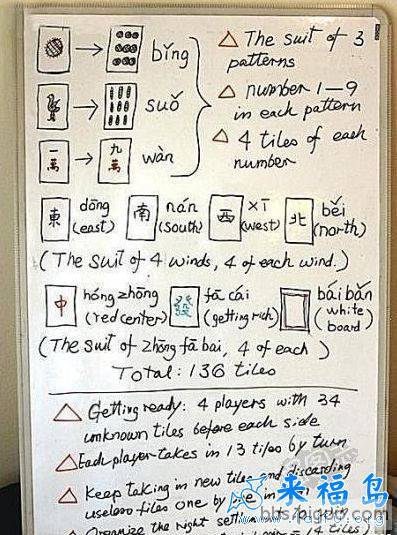 bǐng
suǒ
一萬 九萬 wàn
△ The suit of 3
patterns
△ number 1—9
in each pattern
△ 4 tiles of each
number
東 dōng (east) 南 nán (south) 西 xī (west) 北 běi (north)
(The suit of 4 winds, 4 of each wind.)
中 hóng zhōng (red center) 發 fā cái (getting rich) bái bǎn (white board)
(The suit of zhōng fā bai, 4 of each)
Total: 136 tiles
△ Getting ready: 4 players with 34
unknown tiles before each side
△ Each player takes in 13 tiles by turn
△ Keep taking in new tiles and discarding
useless tiles one by one in
Organize the right set = 14 tiles)
来福岛